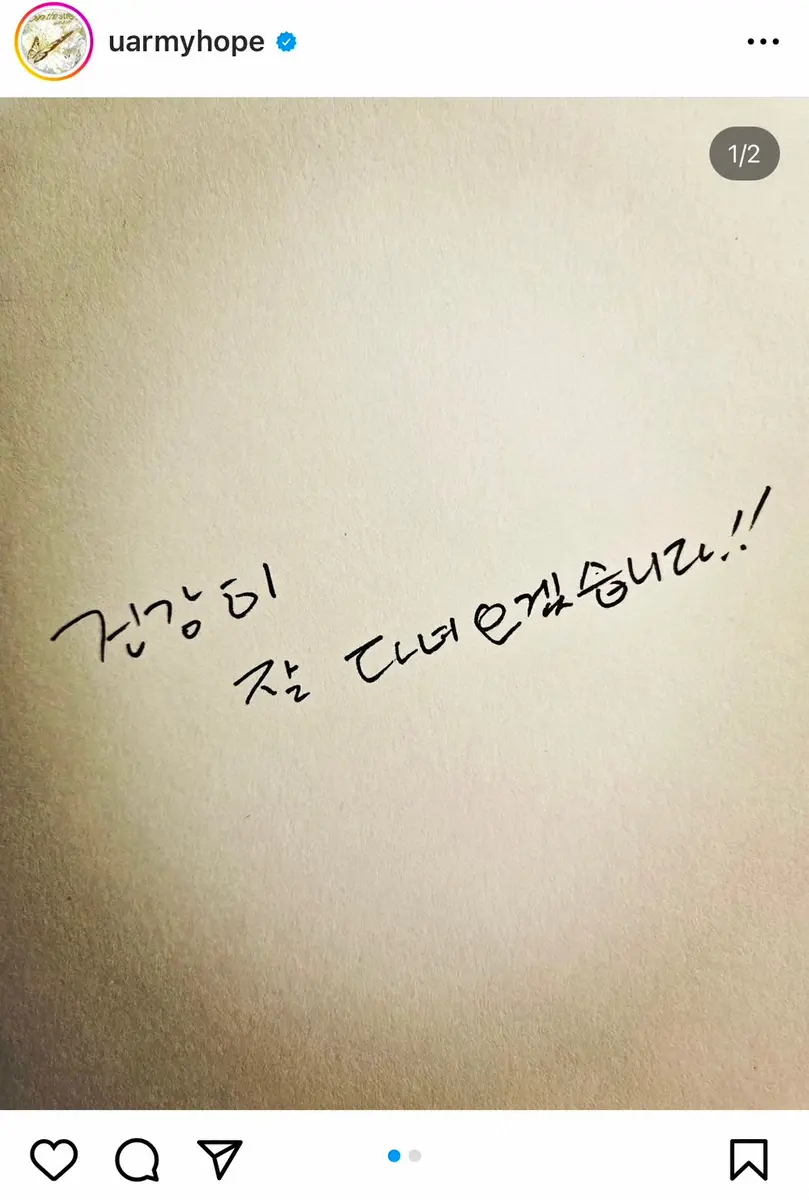 uarmyhope
1/2
건강히
잘 다녀오겠습니다.!!